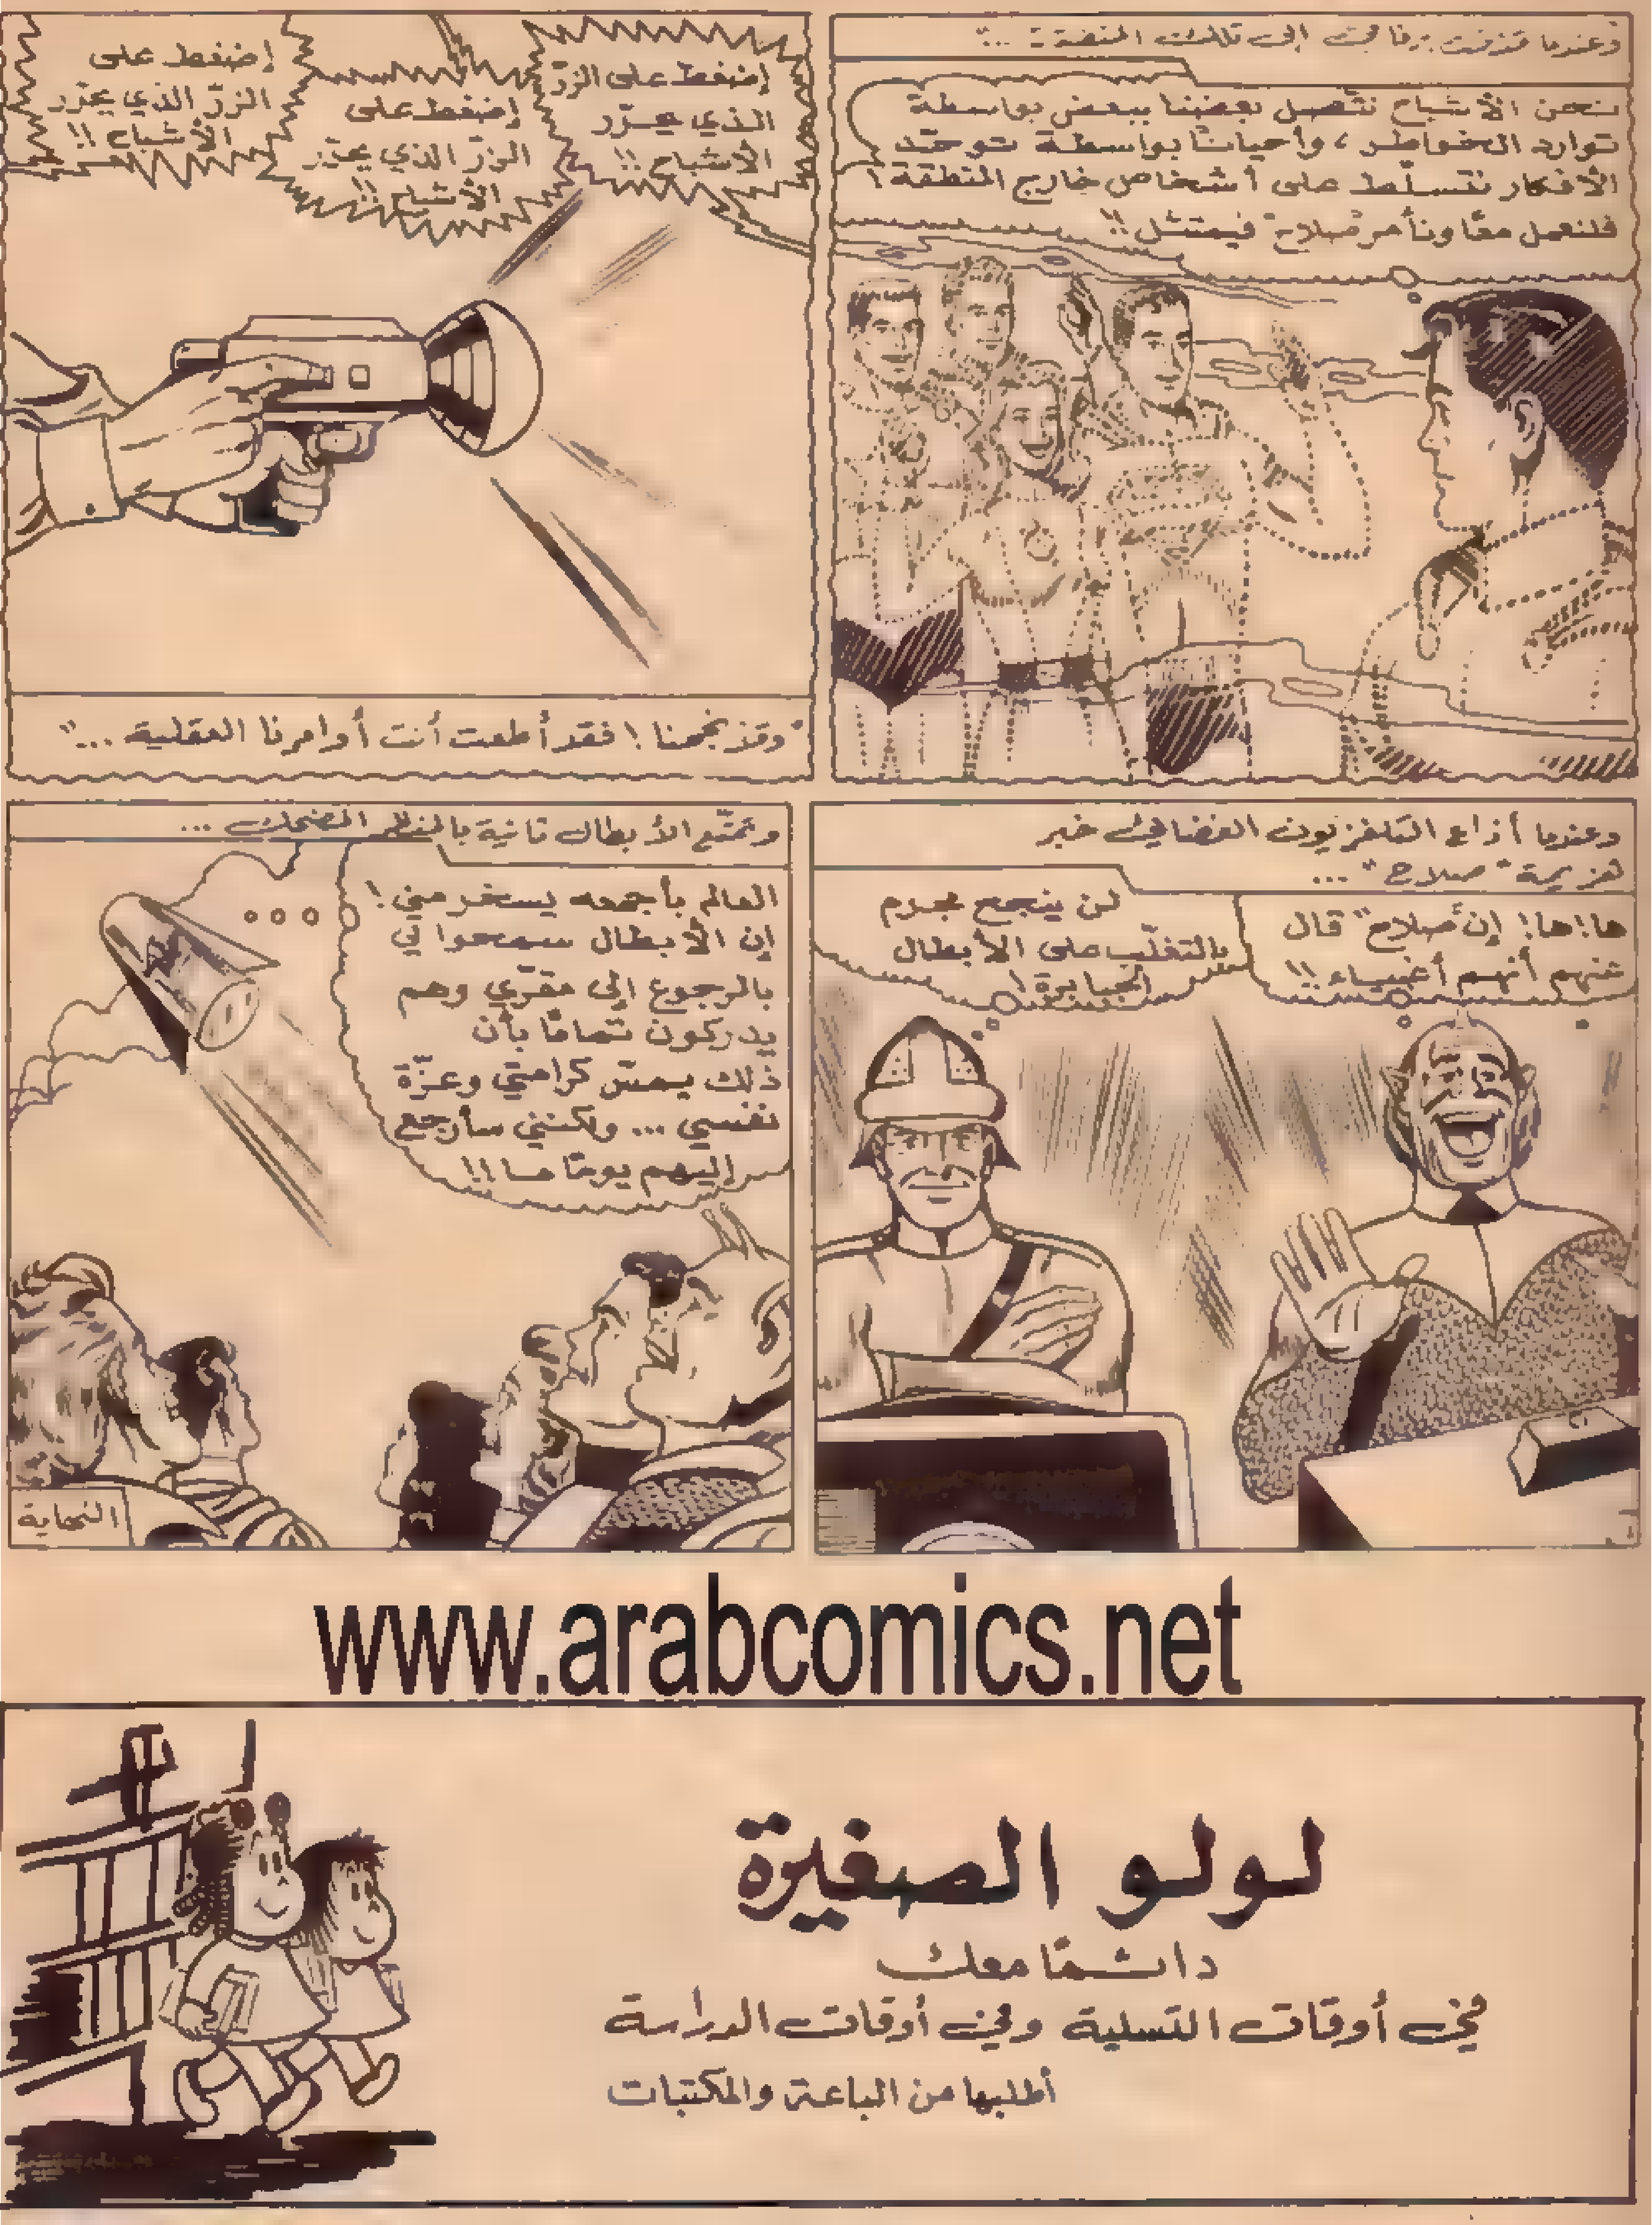 وعندما قذفت برفاقي إلى تلك المنطقة ...
نحن الأشباح نتّصل بعضنا ببعض بواسطة
توارد الخواطر ، وأحيانًا بواسطة توحّد
الأفكار نتسلّط على أشخاص خارج المنطقة !
فلنعمل معًا ونأمر "صلاح" فيمتثل !!
إضغط على الزرّ
الذي يحرّر
الأشباح !!
إضغط على
الزرّ الذي يحرّر
الأشباح !!
إضغط على
الزرّ الذي يحرّر
الأشباح !!
"وقد نجحنا ! فقد أطعت أنت أوامرنا العقلية ..."
وعندما أذاع التلفزيون الفضائي خبر
هزيمة "صلاح" ...
ها ! ها ! إن "صلاح" قال
عنهم أنهم أغبياء !!
لن ينجح مجرم
بالتغلّب على الأبطال
الجبابرة !
وتمتّع الأبطال ثانية بالمنظر المضحك ...
العالم بأجمعه يسخر مني !
إن الأبطال سمحوا لي
بالرجوع إلى مقرّي وهم
يدركون تمامًا بأن
ذلك يمسّ كرامتي وعزّة
نفسي ... ولكنني سأرجع
إليهم يومًا ما !!
النهاية
www.arabcomics.net
لولو الصغيرة
دائمًا معك
في أوقات التسلية وفي أوقات الدراسة
أطلبها من الباعة والمكتبات